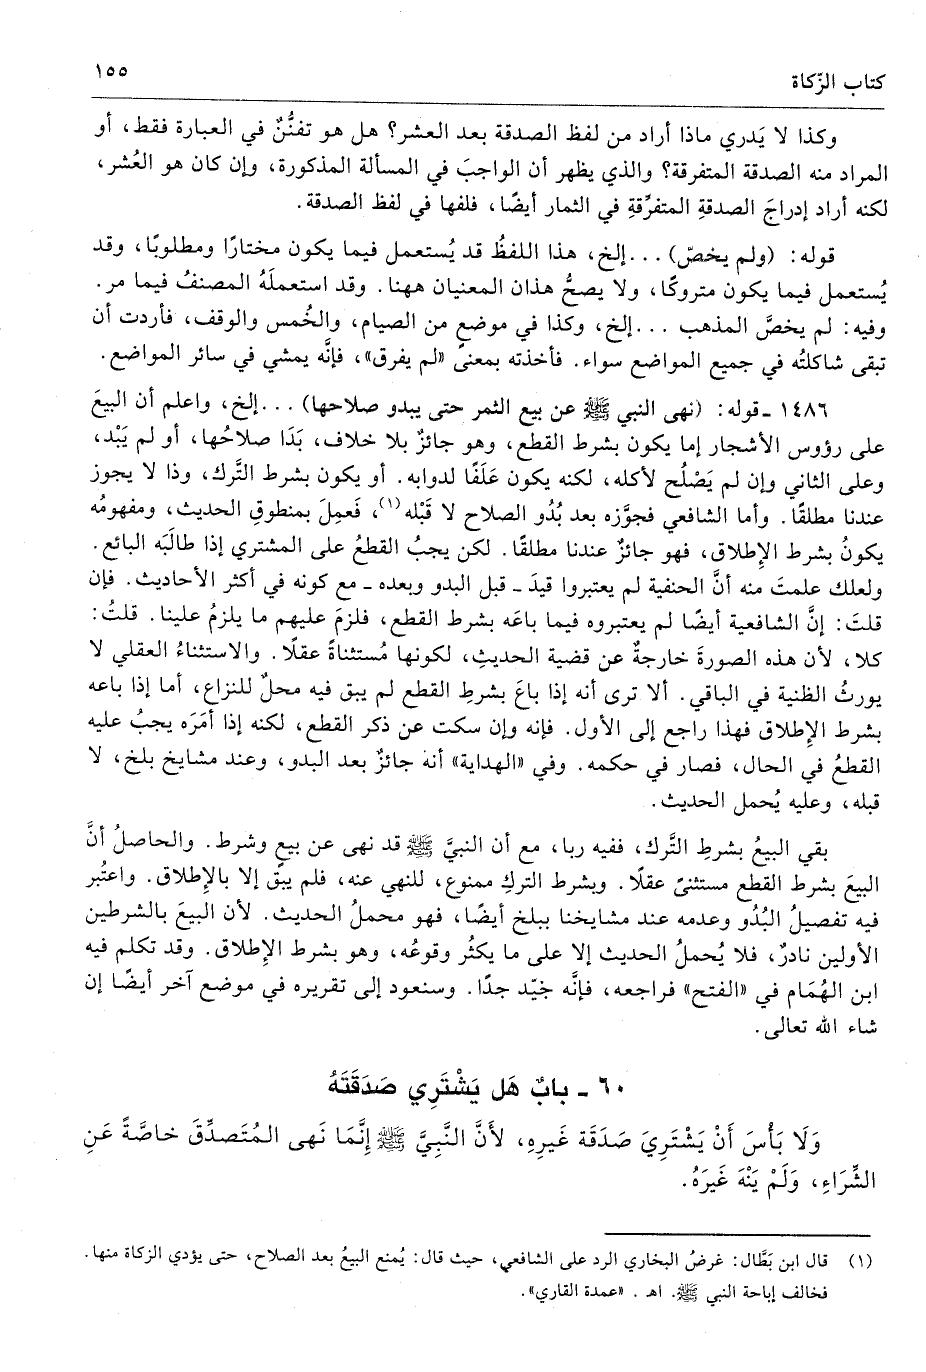 كتاب الزّكاة
١٥٥
وكذا لا يَدري ماذا أراد من لفظ الصدقة بعد العشر؟ هل هو تفنُّنٌ في العبارة فقط، أو
المراد منه الصدقة المتفرقة؟ والذي يظهر أن الواجبَ في المسألة المذكورة، وإن كان هو العُشر،
لكنه أراد إدراجَ الصدقةِ المتفرِّقةِ في الثمار أيضًا، فلفها في لفظ الصدقة.
قوله: (ولم يخصّ) ...إلخ، هذا اللفظُ قد يُستعمل فيما يكون مختارًا ومطلوبًا، وقد
يُستعمل فيما يكون متروكًا، ولا يصحُّ هذان المعنيان ههنا. وقد استعملَهُ المصنفُ فيما مر.
وفيه: لم يخصَّ المذهب ...إلخ، وكذا في موضعٍ من الصيام، والخُمس والوقف، فأردت أن
تبقى شاكلتُه في جميع المواضع سواء. فأخذته بمعنىً «لم يفرق»، فإنَّه يمشي في سائر المواضع.
١٤٨٦ ـ قوله: (نهى النبي ﷺ عن بيع الثمر حتى يبدو صلاحها) ...إلخ، واعلم أن البيعَ
على رؤوس الأشجار إما يكون بشرط القطع، وهو جائزٌ بلا خلاف، بَدَا صلاحُها، أو لم يَبْد،
وعلى الثاني وإن لم يَصْلُح لأكله، لكنه يكون عَلَفًا لدوابه. أو يكون بشرط التَّرك، وذا لا يجوز
عندنا مطلقًا. وأما الشافعي فجوَّزه بعد بُدُو الصلاح لا قَبْله(١)، فَعمِلَ بمنطوقِ الحديث، ومفهومُه
يكونُ بشرط الإِطلاق، فهو جائزٌ عندنا مطلقًا. لكن يجبُ القطعُ على المشتري إذا طالبَه البائع.
ولعلك علمتَ منه أنَّ الحنفية لم يعتبروا قيدَ ـ قبل البدو وبعده ـ مع كونه في أكثر الأحاديث. فإن
قلتَ: إنَّ الشافعية أيضًا لم يعتبروه فيما باعَه بشرط القطع، فلزمَ عليهم ما يلزمُ علينا. قلتُ:
كلا، لأن هذه الصورةَ خارجةٌ عن قضية الحديثِ، لكونها مُستثناةً عقلًا. والاستثناءُ العقلي لا
يورثُ الظنية في الباقي. ألا ترى أنه إذا باعَ بشرطِ القطع لم يبق فيه محلٌ للنزاع، أما إذا باعه
بشرط الإِطلاق فهذا راجع إلى الأول. فإنه وإن سكت عن ذكر القطع، لكنه إذا أمَرَه يجبُ عليه
القطعُ في الحال، فصار في حكمه. وفي «الهداية» أنه جائزٌ بعد البدو، وعند مشايخ بلخ، لا
قبله، وعليه يُحمل الحديث.
بقي البيعُ بشرطِ التَّرك، ففيه ربا، مع أن النبيَّ ﷺ قد نهى عن بيعٍ وشرط. والحاصلُ أنَّ
البيعَ بشرط القطع مستثنىً عقلًا. وبشرط التركِ ممنوع، للنهي عنه، فلم يبقَ إلا بالإِطلاق. واعتُبر
فيه تفصيلُ البُدُو وعدمه عند مشايخنا ببلخ أيضًا، فهو محملُ الحديث. لأن البيعَ بالشرطين
الأولين نادرٌ، فلا يُحملُ الحديث إلا على ما يكثُر وقوعُه، وهو بشرط الإِطلاق. وقد تكلم فيه
ابن الهُمَام في «الفتح» فراجعه، فإنَّه جَيّد جدًا. وسنعود إلى تقريره في موضع آخر أيضًا إن
شاء الله تعالى.
٦٠ ـ بابٌ هَل يَشْتَرِي صَدَقَتَهُ
وَلَا بَأْسَ أَنْ يَشْتَرِيَ صَدَقَة غَيرِهِ، لأَنَّ النَّبِيَّ ﷺ إِنَّمَا نَهى المُتَصدِّقَ خاصَّةً عَنِ
الشِّرَاءِ، وَلَمْ يَنْهَ غَيرَهُ.
(١) قال ابن بَطَّال: غرضُ البخاري الرد على الشافعي، حيث قال: يُمنع البيعُ بعد الصلاح، حتى يؤدي الزكاة منها.
فخالف إباحة النبي ﷺ. اهـ. «عمدة القاري».